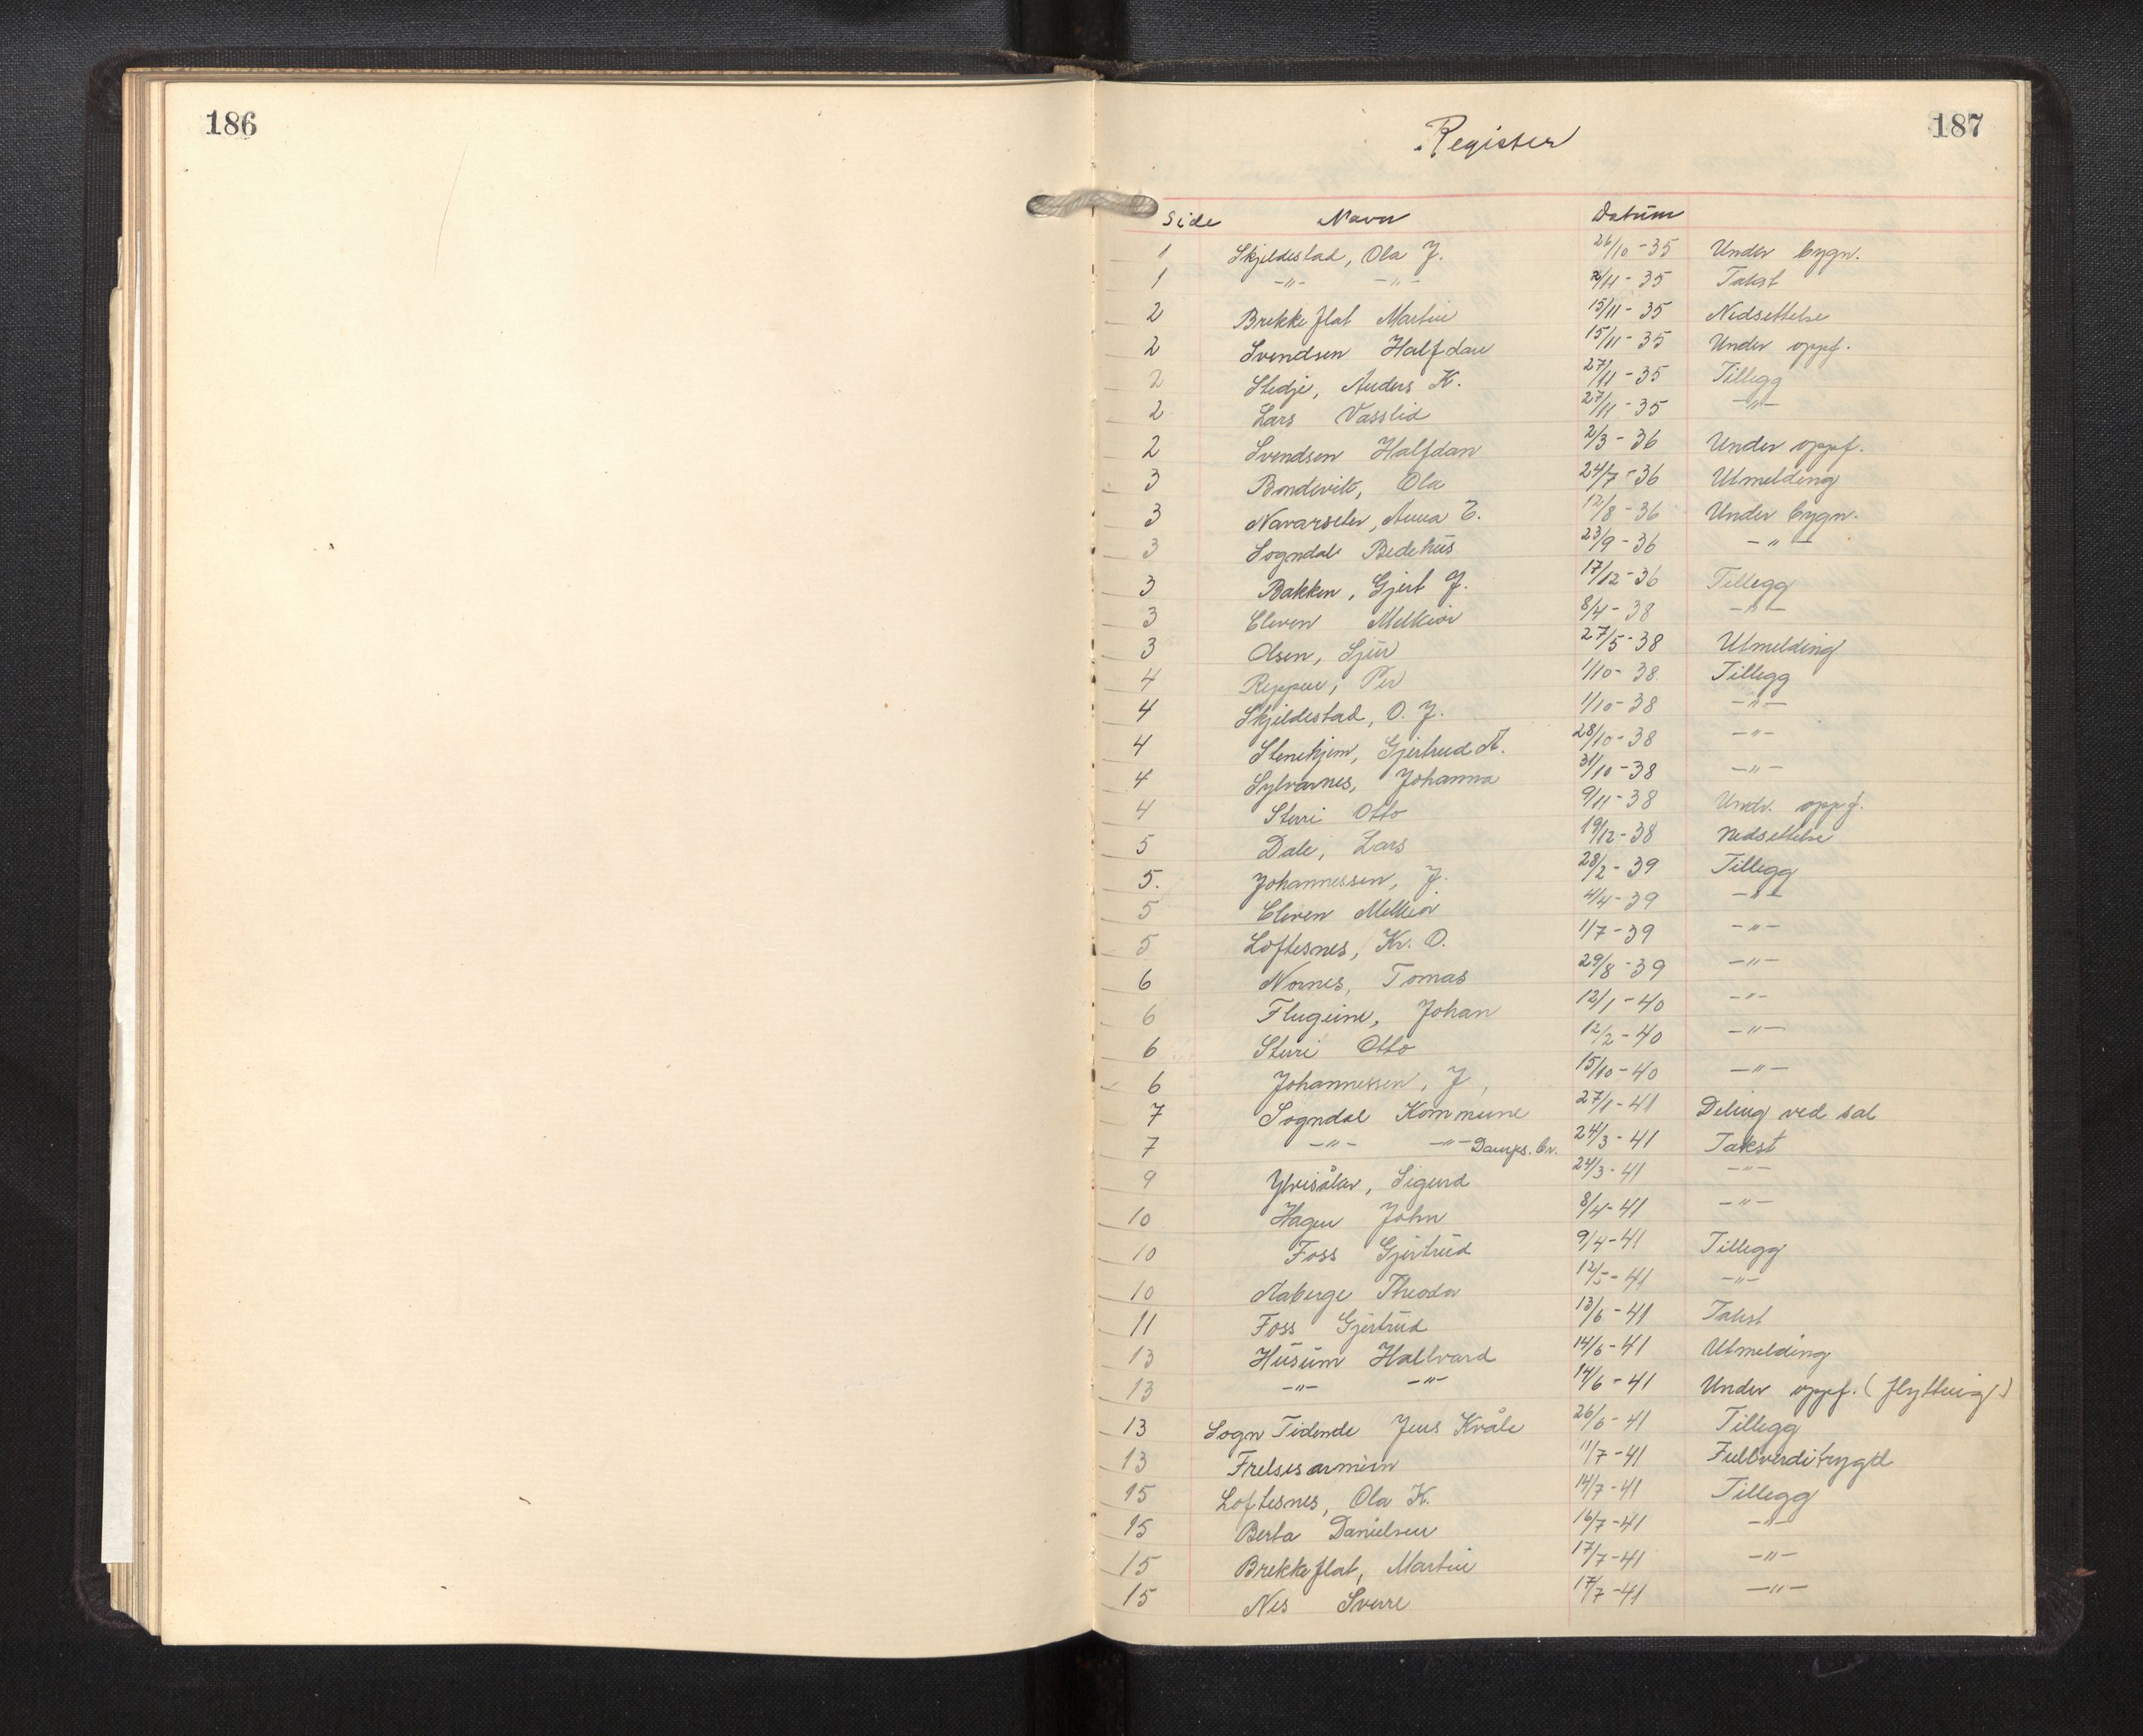 186
187
Register
Side Navn Datum
1 Skjeldestad, Ola J. 26/10-35 Under bygn.
1 -"- -"- 2/11-35 Takst
2 Brekkeflat Martin 15/11-35 Nedsettelse
2 Svendsen Halfdan 15/11-35 Under oppf.
2 Stedje, Anders K. 27/11-35 Tillegg
2 Lars Vasslid 27/11-35 -"-
2 Svendsen Halfdan 2/3-36 Under oppf.
3 Bondevik, Ola 24/7-36 Utmelding
3 Navarseter, Anna E. 12/8-36 Under bygn.
3 Sogndals Bedehus 23/9-36 -"-
3 Bakken, Gjert J. 17/12-36 Tillegg
3 Elven Melkior 8/4-38 -"-
3 Olsen, Sjur 27/5-38 Utmelding
4 Reppen, Per 1/10-38 Tillegg
4 Skjeldestad, O. J. 1/10-38 -"-
4 Stenehjem, Gjertrud A. 28/10-38 -"-
4 Sylvarnes, Johanna 31/10-38 -"-
4 Sterri Otto 9/11-38 Undr. oppf.
5 Dale, Lars 19/12-38 Nedsettelse
5. Johannessen, J. 28/2-39 Tillegg
5 Elven Melkior 4/4-39 -"-
5 Loftesnes, Kr. O. 1/7-39 -"-
6 Nornes, Tomas 29/8-39 -"-
6 Flugeim, Johan 12/1-40 -"-
6 Sterri Otto 12/2-40 -"-
6 Johannessen, J, 15/10-40 -"-
7 Sogndal Kommune 27/1-41 Deling ved sal
7 -"- -"- Damps. br. 24/3-41 Takst
9 Ylvisåker, Sigurd 24/3-41 -"-
10 Hagen John 8/4-41 -"-
10 Foss Gjertrud 9/4-41 Tillegg
10 Aaberge Theodor 12/5-41 -"-
11 Foss Gjertrud 13/6-41 Takst
13 Husum Hallvard 14/6-41 Utmelding
13 -"- -"- 14/6-41 Under oppf. (flytting)
13 Sogn Tidende Jens Kvåle 26/6-41 Tillegg
13 Frelsesarmeen 11/7-41 Fullverditrygd
15 Loftesnes, Ola K. 14/7-41 Tillegg
15 Berta Danielsen 16/7-41 -"-
15 Brekkeflat, Martin 17/7-41 -"-
15 Nes Sverre 17/7-41 -"-